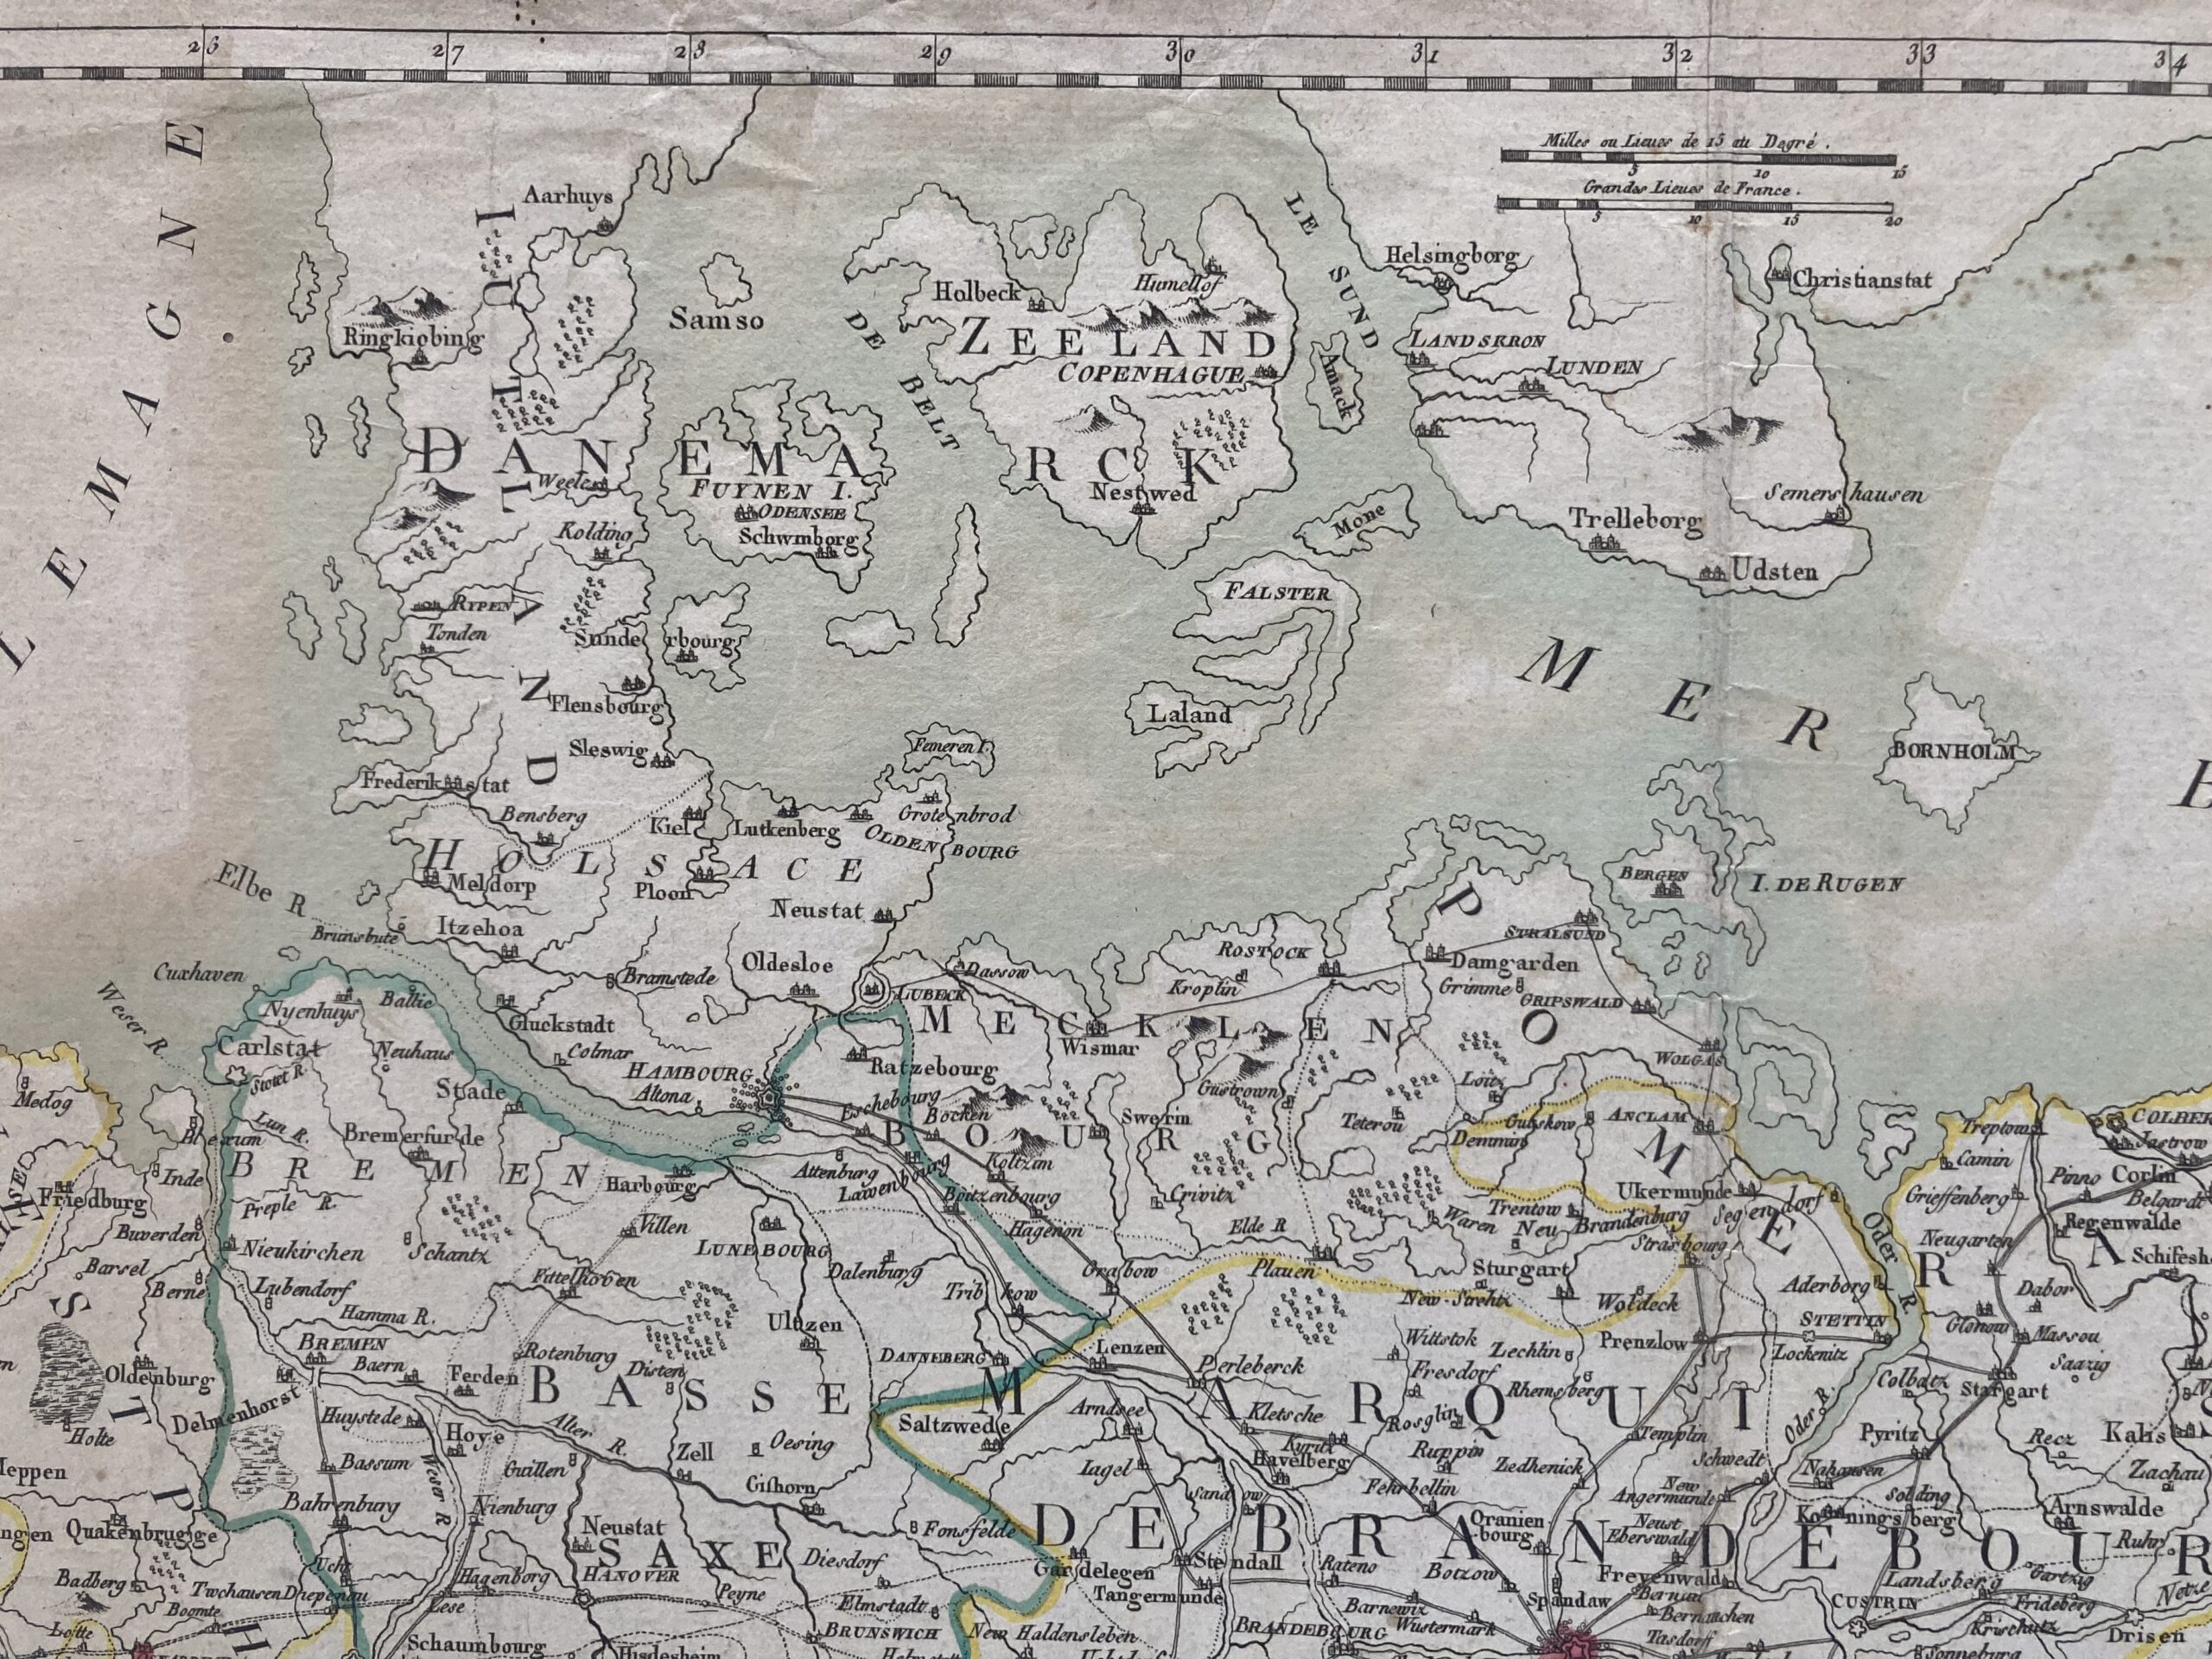 26 27 28 29 30 31 32 33 34
Milles ou Lieues de 15 au Degré.
5 10 15
Grandes Lieues de France.
5 10 15 20
LEMAGNE
Aarhuys
IUTLAND
LE SUND
Helsingborg
Christianstat
Samso
Holbeck
Humellof
Ringkiobing
DE BELT
ZEELAND
COPENHAGUE
Amack
LANDSKRON
LUNDEN
DANEMARCK
Weele
FUYNEN I.
ODENSEE
Nestwed
Semershausen
Kolding
Schwmborg
Mone
Trelleborg
Udsten
RYPEN
Tonden
Sunderbourg
FALSTER
MER
Flensbourg
Laland
Sleswig
Femeren I.
BORNHOLM
Frederikstat
Bensberg
Kiel
Lutkenberg
Grotenbrod
OLDENBOURG
HOLSACE
Meldorp
Ploon
BERGEN
I. DE RUGEN
Elbe R.
Itzehoa
Neustat
Brunsbute
STRALSUND
ROSTOCK
Cuxhaven
Bramstede
Oldesloe
Dassow
Damgarden
Weser R.
Nyenhuys
Baltic
LUBECK
Kroplin
Grimme
GRIPSWALD
Gluckstadt
MECKLENBOURG
POMERA
Carlstat
Neuhaus
Colmar
Wismar
WOLGAS
Stotel R.
HAMBOURG
Ratzebourg
Gustrown
Loitz
Medog
Stade
Altona
Eschebourg
Bocken
Swerin
Teterou
Gutskow
ANCLAM
Treptow
COLBER
Lun R.
Blexum
Bremerfurde
Demmin
Jastrow
BREMEN
Inde
Harbourg
Attenburg
Lawenbourg
Koltzim
Camin
Pinno
Corlin
Friedburg
Preple R.
Boitzenbourg
Crivitz
Ukermunde
Segendorf
Grieffenberg
Belgardt
Buverden
Villen
Hagenon
Elde R.
Waren
Trentow
Neu Brandenburg
Oder R.
Regenwalde
Nieukirchen
Schantz
LUNEBOURG
Strasbourg
Neugarten
Barsel
Berne
Lubendorf
Fittelhoven
Dalenburg
Grabow
Plauen
Sturgart
Aderborg
Schifesh
Hamma R.
Tribkow
New-Strehtz
Woldeck
Dabor
BREMEN
Rotenburg
Ultzen
Wittstok
Zechlin
Prenzlow
STETTIN
Glonow
Massou
Oldenburg
Baern
Ferden
Disten
DANNEBERG
Lenzen
Perleberck
Fresdorf
Lochenitz
Saazig
BASSE
MARQUI
Rhemsberg
Colbatz
Stargart
Delmenhorst
Huystede
Hoye
Alter R.
Saltzwede
Arndsee
Kletsche
Rosglin
Templin
Oder R.
Holte
Zell
Oesing
Kyritz
Ruppin
Schwedt
Pyritz
Recz
Kalis
Meppen
Bassum
Weser R.
Guillen
Gifhorn
Iagel
Havelberg
Zedhenick
Nahausen
Zachau
Bahrenburg
Nienburg
Sandow
Fehrbellin
New Angermunde
Solding
Arnswalde
Quakenbrugge
Neustat
Fonsfelde
Oranienbourg
Neust Eberswald
Koenningsberg
SAXE
DE BRANDEBOUR
Ruhr
Ucht
Diesdorf
Gardelegen
Stendall
Rateno
Botzow
Freyenwald
Landsberg
Gartzig
Badberg
Twchausen
Diepenau
Hagenborg
HANOVER
Peyne
Tangermunde
Barnewiz
Spandaw
Bernau
Frideberg
Netze
Boomte
Lese
Elmstadt
Wustermark
Bernauchen
CUSTRIN
Lotte
Schaumbourg
BRUNSWICH
New Haldensleben
BRANDEBOURG
Tasdorff
Krischutz
Drisen
Hildesheim
Helmstett
Sonneburg